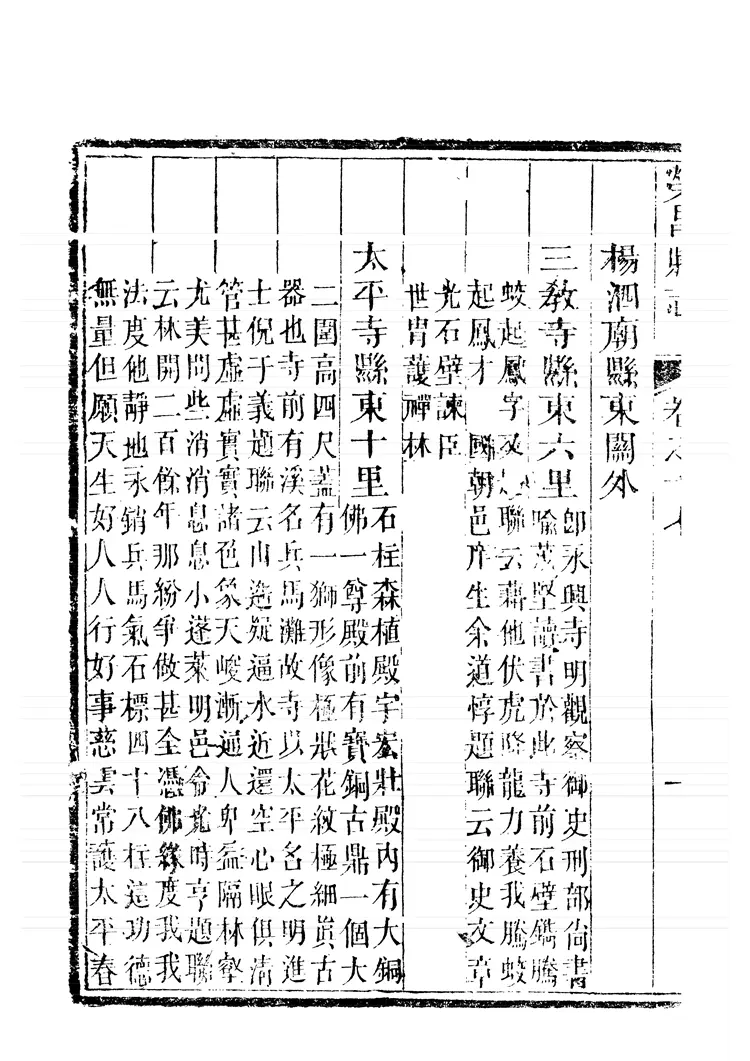 榮昌縣志 卷之十七 一
楊泗廟縣東關外
三教寺縣東六里
即永興寺明觀察御史刑部尚書
喻茂堅讀書於此寺前石壁鐫騰
蛟起鳳字又題聯云藉他伏虎降龍力養我騰蛟
起鳳才 國朝邑庠生余道惇題聯云御史文章
光石壁諫臣
世胄護禪林
太平寺縣東十里
石柱森植殿宇宏壯殿內有大銅
佛一尊殿前有寶銅古鼎一個大
二圍高四尺蓋有一獅形像極壯花紋極細眞古
器也寺前有溪名兵馬灘故寺以太平名之明進
士倪于義題聯云山造疑逼水近還空心眼俱清
管甚虛虛實實諸色象天峻漸逼人卑益隔林壑
尤美問些消消息息小蓬萊明邑令時亨題聯
云林開二百餘年那紛爭做甚全憑佛緣度我我
法度他靜地永銷兵馬氣石標四十八柱這功德
無量但願天生好人人行好事慈雲常護太平春